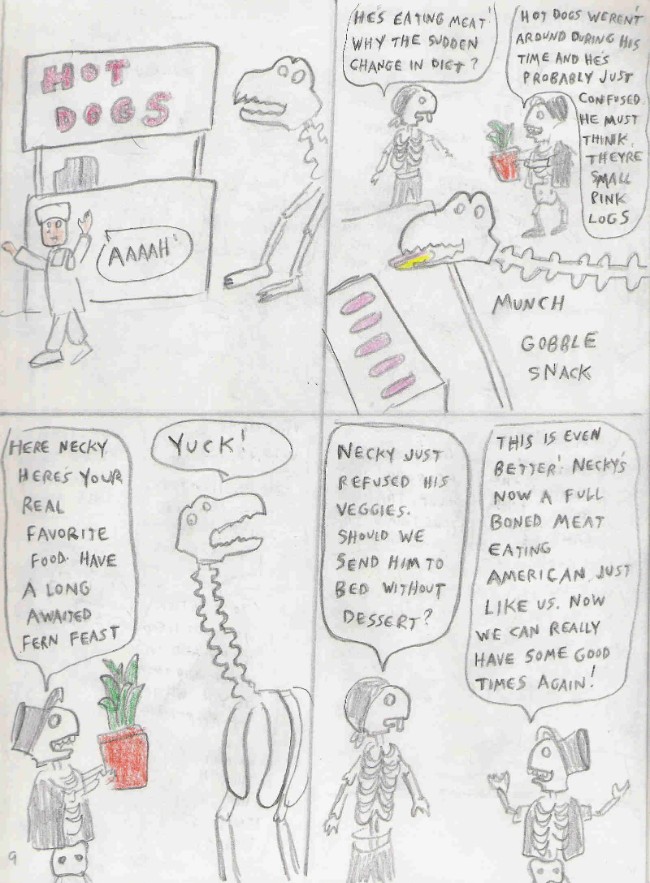 HOT
DOGS
AAAAH!
HE'S EATING MEAT!
WHY THE SUDDEN
CHANGE IN DIET?
HOT DOGS WEREN'T
AROUND DURING HIS
TIME AND HE'S
PROBABLY JUST
CONFUSED
HE MUST
THINK
THEYRE
SMALL
PINK
LOGS
MUNCH
GOBBLE
SNACK
HERE NECKY
HERE'S YOUR
REAL
FAVORITE
FOOD. HAVE
A LONG
AWAITED
FERN FEAST
YUCK!
NECKY JUST
REFUSED HIS
VEGGIES.
SHOULD WE
SEND HIM TO
BED WITHOUT
DESSERT?
THIS IS EVEN
BETTER! NECKY'S
NOW A FULL
BONED MEAT
EATING
AMERICAN JUST
LIKE US. NOW
WE CAN REALLY
HAVE SOME GOOD
TIMES AGAIN!
9